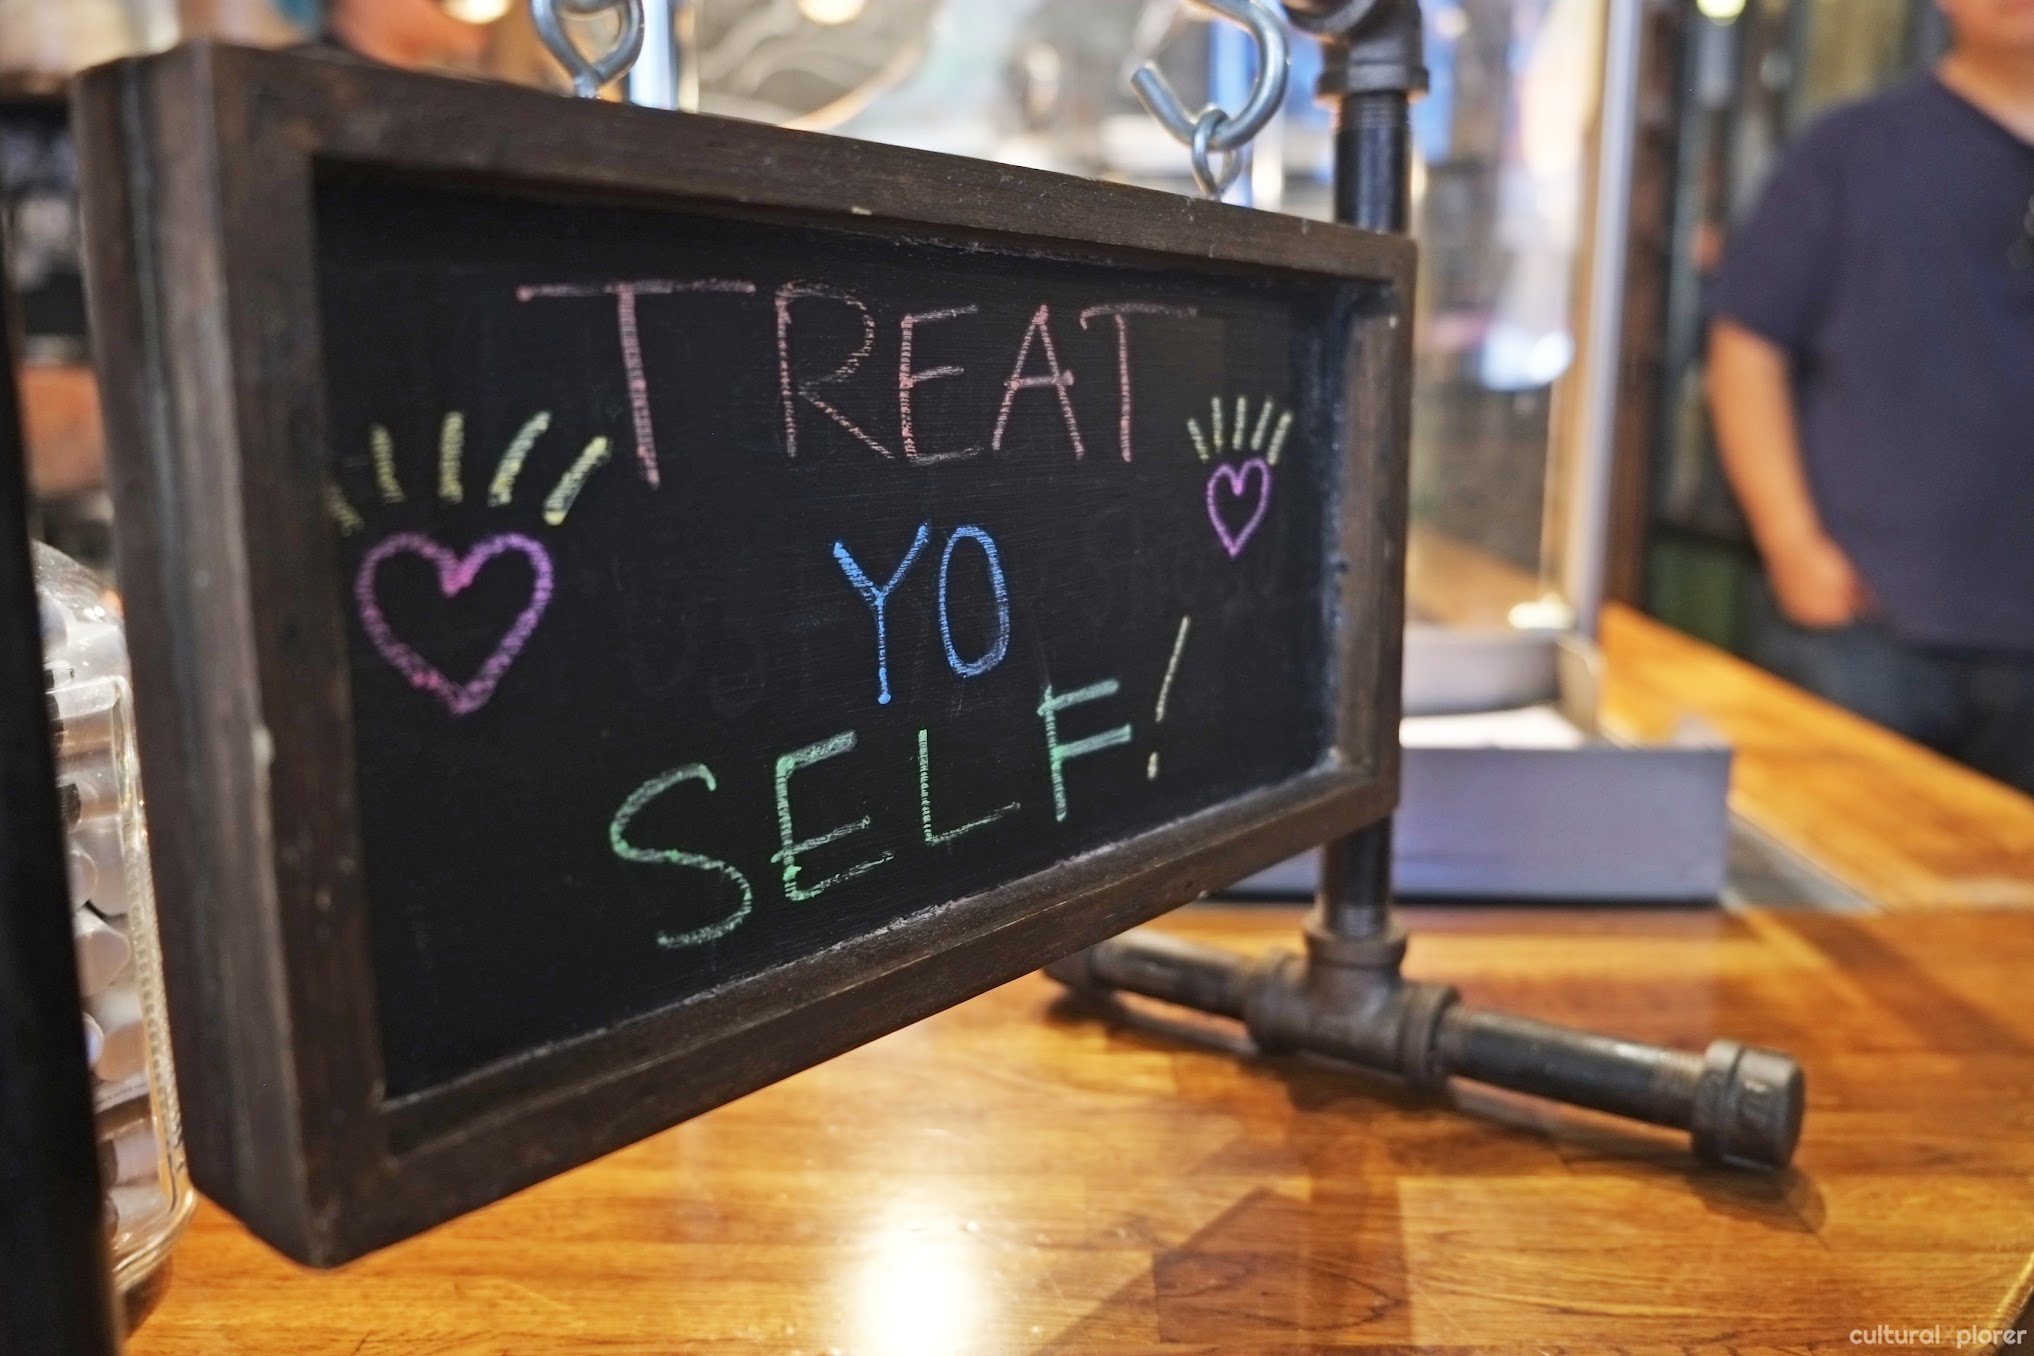 TREAT
YO
SELF!
culturalXplorer